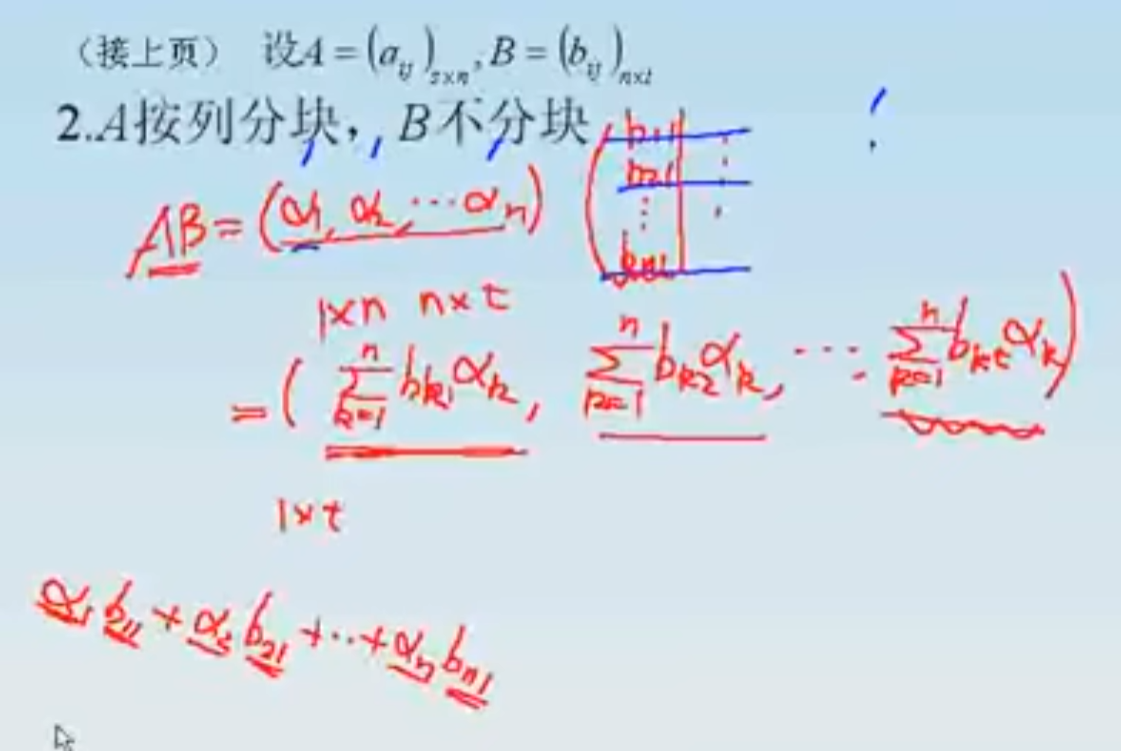 （接上页） 设A = (a_ij)_s×n, B = (b_ij)_n×t
2.A按列分块，B不分块
AB = (α1, α2, ⋯ αn) (b11 ⋮
b21
⋮
bn1
1×n n×t
= ( ∑_{k=1}^{n} b_k1 α_k, ∑_{k=1}^{n} b_k2 α_k, ⋯ ∑_{k=1}^{n} b_kt α_k)
1×t
α1 b11 + α2 b21 + ⋯ + αn bn1